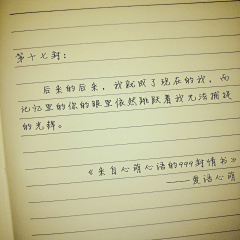 第十七封：
后来的后来，我就成了现在的我，而
记忆里的你的眼里依然跳跃着我无法捕捉
的光辉。
《来自心萌心语的999封情书》
——爱语心萌